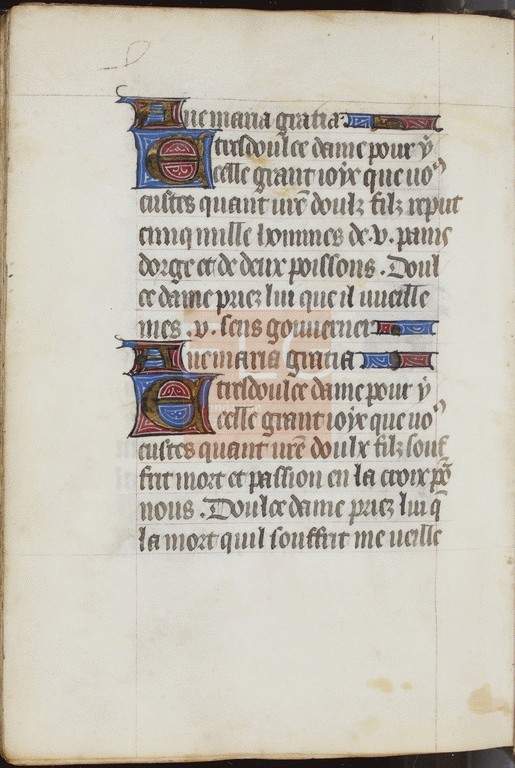 Aue maria gratia
E tresdoulce dame pour ỹ
celle grant ioye que uo⁹
eustes quant ur̃e doulz filz reput
cinq mille hommes de .v. pains
dorge et de deux poissons . Doul
ce dame priez lui que il uueille
mes .v. sens gouuerner
Aue maria gratia
E tresdoulce dame pour ỹ
celle grant ioye que uo⁹
eustes quant ur̃e doulx filz souf
frit mort et passion en la croix po᷑
nous . Doulce dame priez lui q̃
la mort quil souffrit me ueille